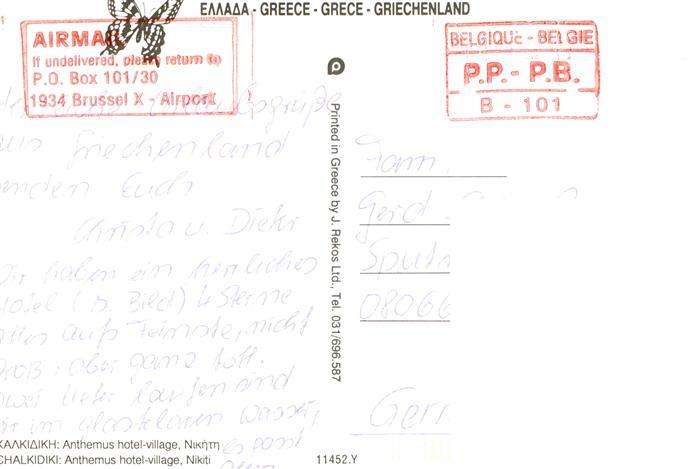 ΕΛΛΑΔΑ - GREECE - GRECE - GRIECHENLAND
AIRMAIL
If undelivered, please return to
P.O. Box 101/30
1934 Brussel X - Airport
BELGIQUE - BELGIE
P.P. - P.B.
B - 101
Printed in Greece by J. Rekos Ltd., Tel. 031/696.587
Griechenland
senden Euch
Christa u. Dieter
Wir haben ein herrliches
Hotel (s. Bild) 4 Sterne
alles aufs Feinste, nicht
groß, aber ganz toll.
laufen sind
wir im glasklaren Wasser,
es passt
Fam.
Gerd
08066
Germ
ΧΑΛΚΙΔΙΚΗ: Anthemus hotel-village, Νικήτη
CHALKIDIKI: Anthemus hotel-village, Nikiti
11452.Y